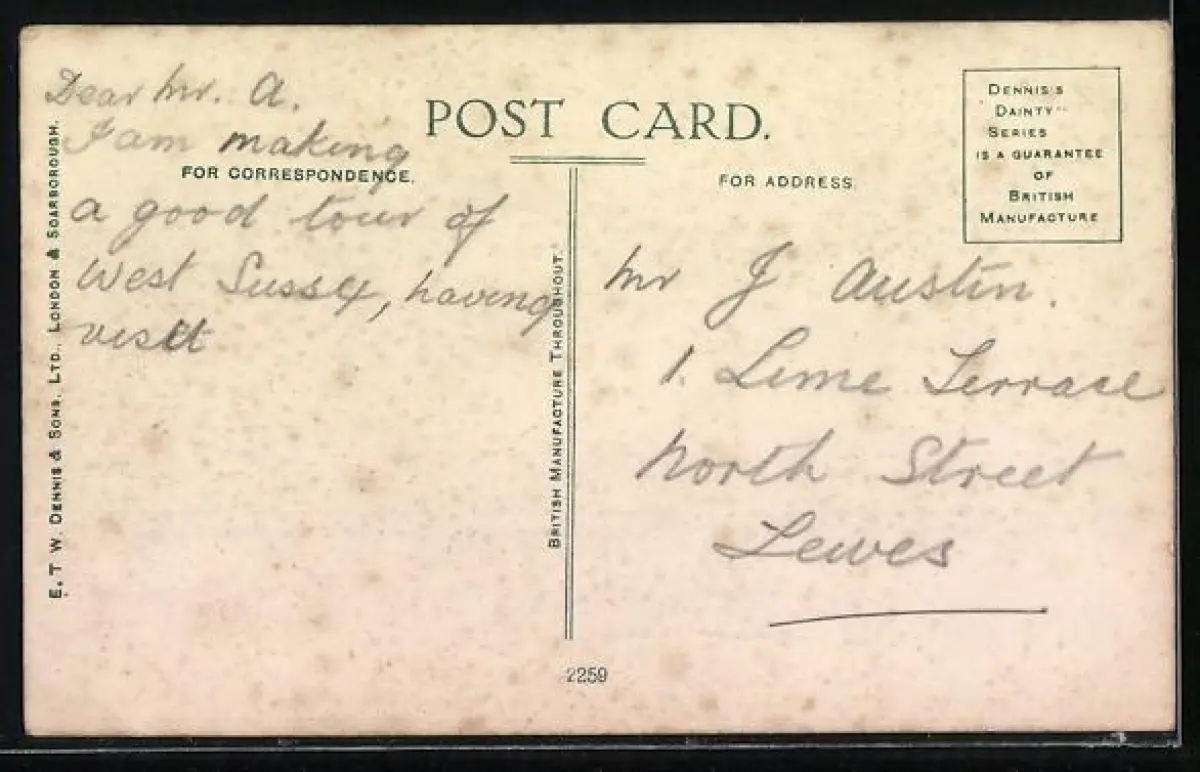 Dear Mr. A.
I am making
a good tour of
West Sussex, having
visit
POST CARD.
FOR CORRESPONDENCE.
FOR ADDRESS.
DENNIS'S
"DAINTY"
SERIES
IS A GUARANTEE
OF
BRITISH
MANUFACTURE
Mr J Austin.
1. Lime Terrace
North Street
Lewes
E. T. W. DENNIS & SONS, LTD., LONDON & SCARBOROUGH.
BRITISH MANUFACTURE THROUGHOUT.
2259